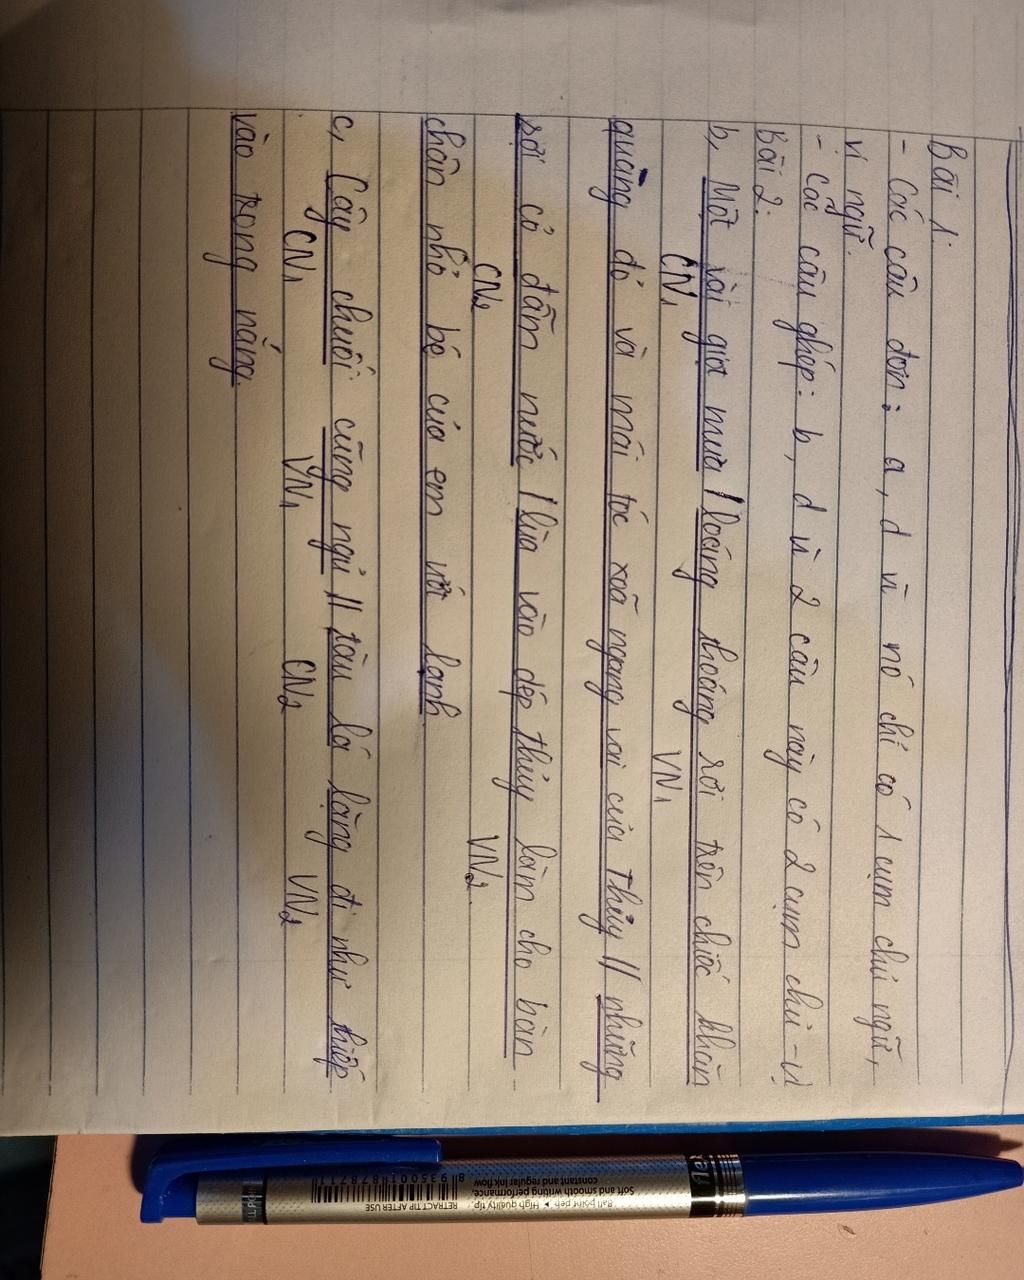 Bài 1:
- Các câu đơn: a, d vì nó chỉ có 1 cụm chủ ngữ,
vị ngữ.
- Các câu ghép: b, d vì 2 câu này có 2 cụm chủ-vị
Bài 2:
b, Một vài giọt mưa / loáng thoáng rơi trên chiếc khăn
CN1 VN1
quàng đỏ và mái tóc xoã ngang vai của Thủy // những
sợi cỏ đẫm nước / lùa vào dép Thủy làm cho bàn
CN2 VN2.
chân nhỏ bé của em ướt lạnh.
c, Cây chuối cũng ngủ // tàu lá lặng đi như thiếp
CN1 VN1 CN2 VN2
vào trong nắng.
flex
Ball point pen High quality tip
Soft and smooth writing performance,
constant and regular ink flow
RETRACT TIP AFTER USE